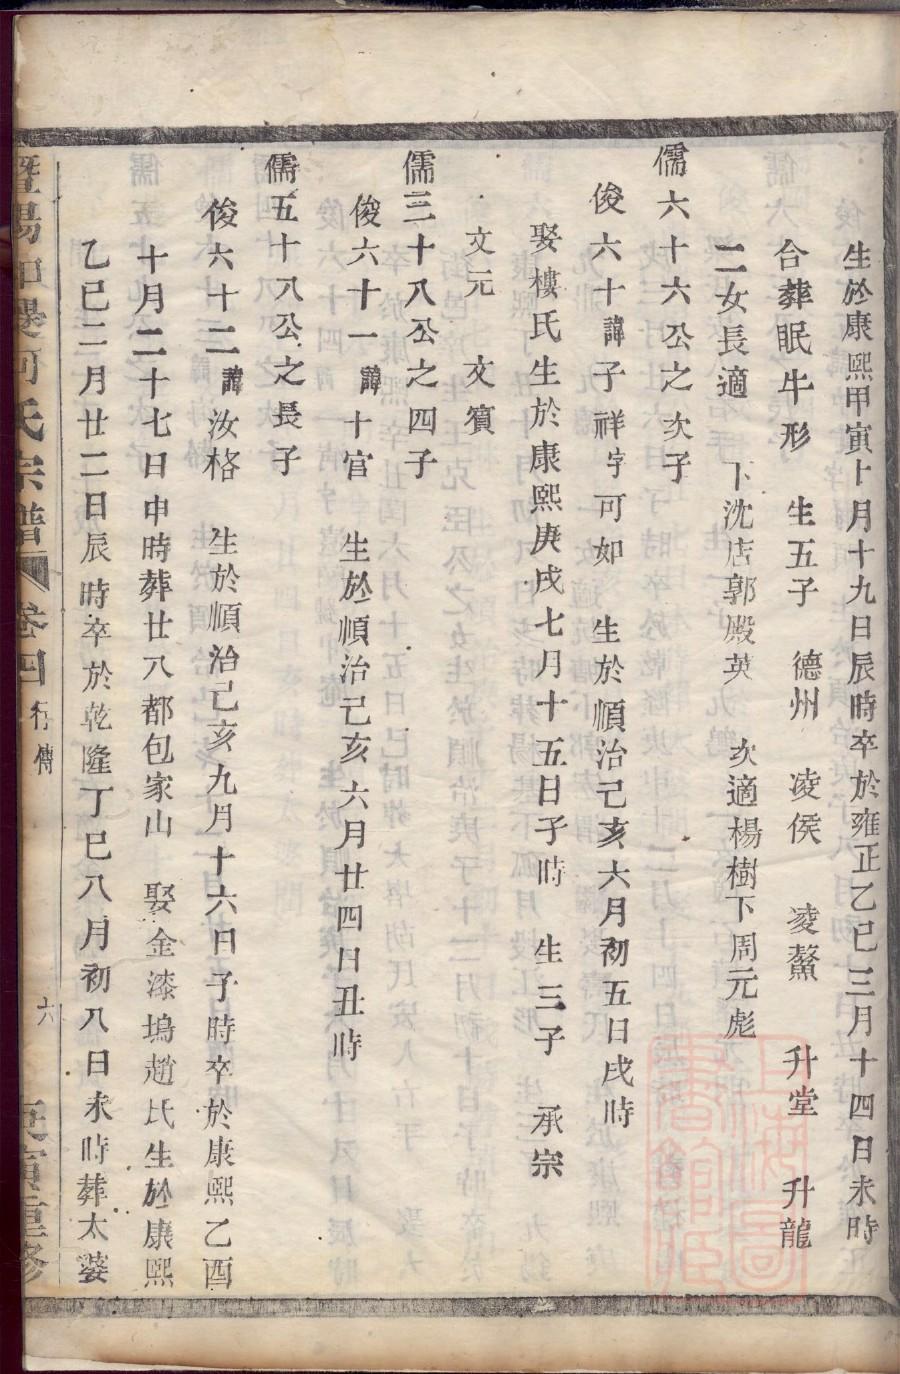 生於康熙甲寅十月十九日辰時卒於雍正乙巳三月十四日未時
合葬眠牛形　生五子　德州　凌侯　凌鰲　升堂　升龍
二女長適　下沈店郭殿英　次適楊樹下周元彪
儒六十六公之次子
俊六十諱子祥字可如　生於順治己亥六月初五日戌時
娶樓氏生於康熙庚戌七月十五日子時　生三子　承宗
文元　文賔
儒三十八公之四子
俊六十一諱十官　生於順治己亥六月廿四日丑時
儒五十八公之長子
俊六十二諱汝格　生於順治己亥九月十六日子時卒於康熙乙酉
十月二十七日申時葬廿八都包家山　娶金漆塢趙氏生於康熙
乙巳二月廿二日辰時卒於乾隆丁巳八月初八日未時葬太婆
暨陽　河氏宗譜　卷四　行傳　六　庚寅重修
上海圖書館藏